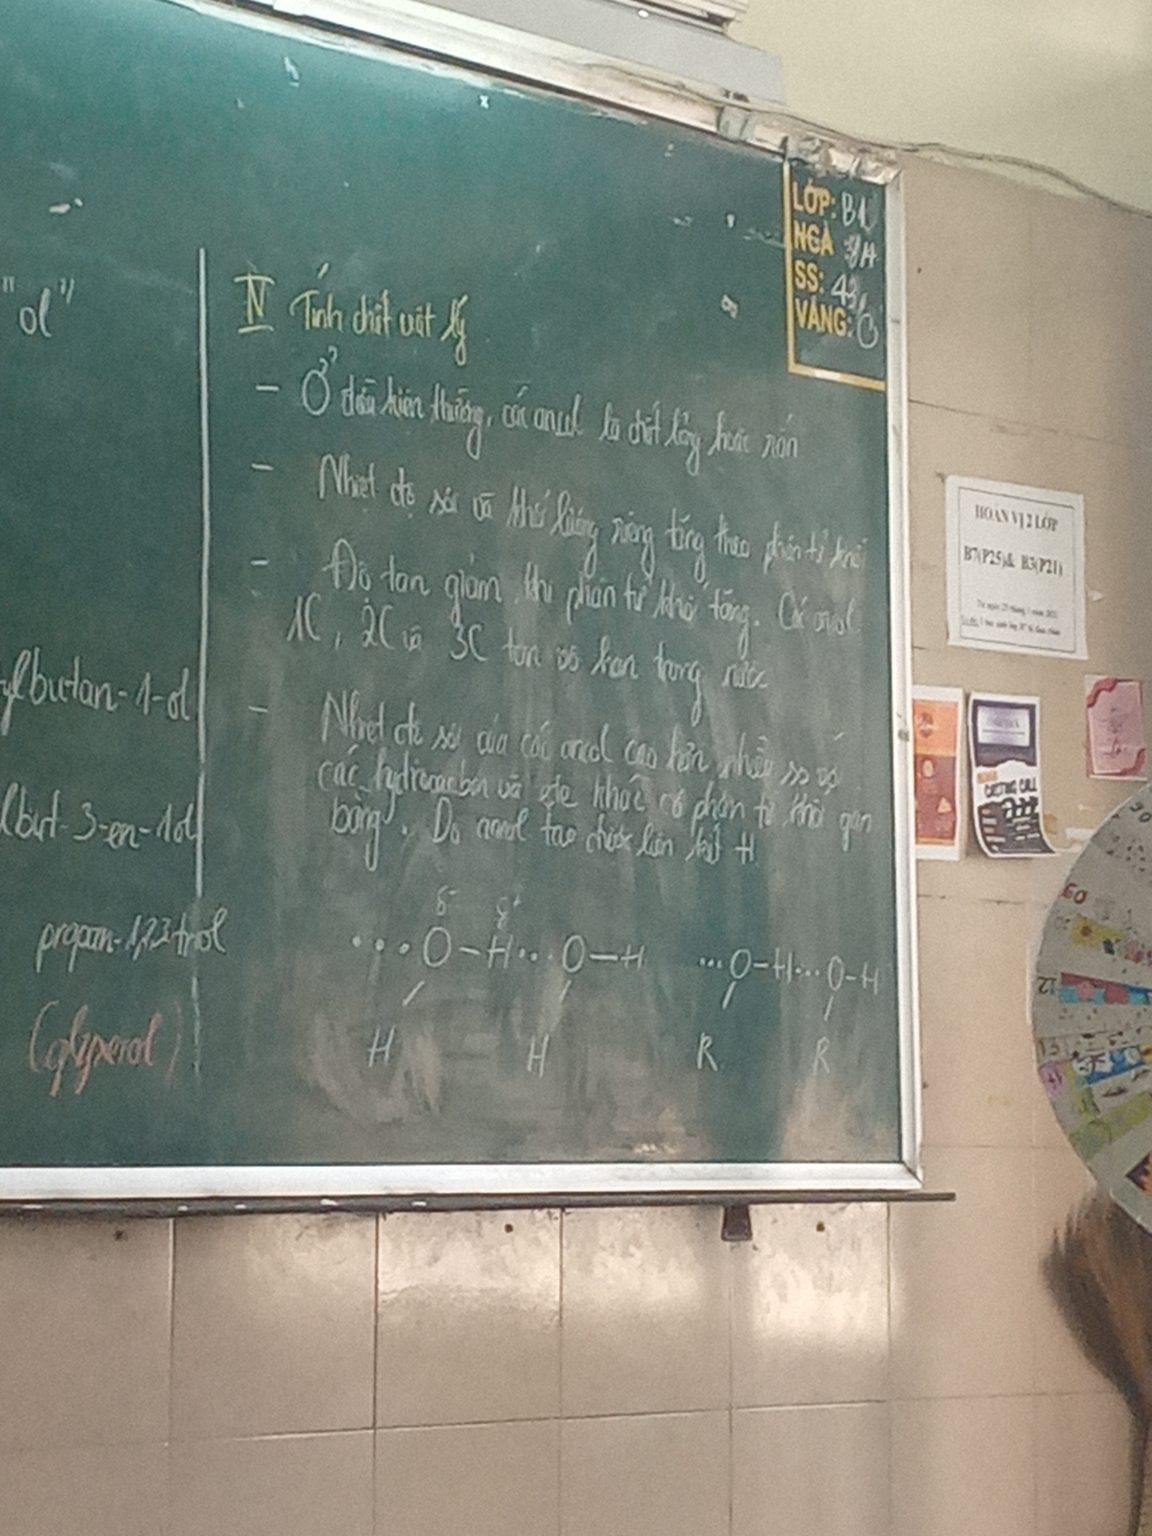 "ol"
ylbutan-1-ol
lbut-3-en-1ol
propan-1,2,3 triol
(glyxerol)
IV Tính chất vật lý
- Ở điều kiện thường, các ancol là chất lỏng hoặc rắn
- Nhiệt độ sôi và khối lượng riêng tăng theo phân tử khối
- Độ tan giảm khi phân tử khối tăng. Các ancol
1C, 2C và 3C tan vô hạn trong nước
- Nhiệt độ sôi của các ancol cao hơn nhiều so với
các hydrocacbon và ete khác có phân tử khối gần
bằng. Do ancol tạo được liên kết H
δ- δ+
...O-H...O-H ...O-H...O-H
H H R R
LỚP: B1
NGÀ
SS: 43
VẮNG: 0
HOÁN VỊ 2 LỚP
B7(P25)& B3(P21)
CASTING CALL
09
12
13